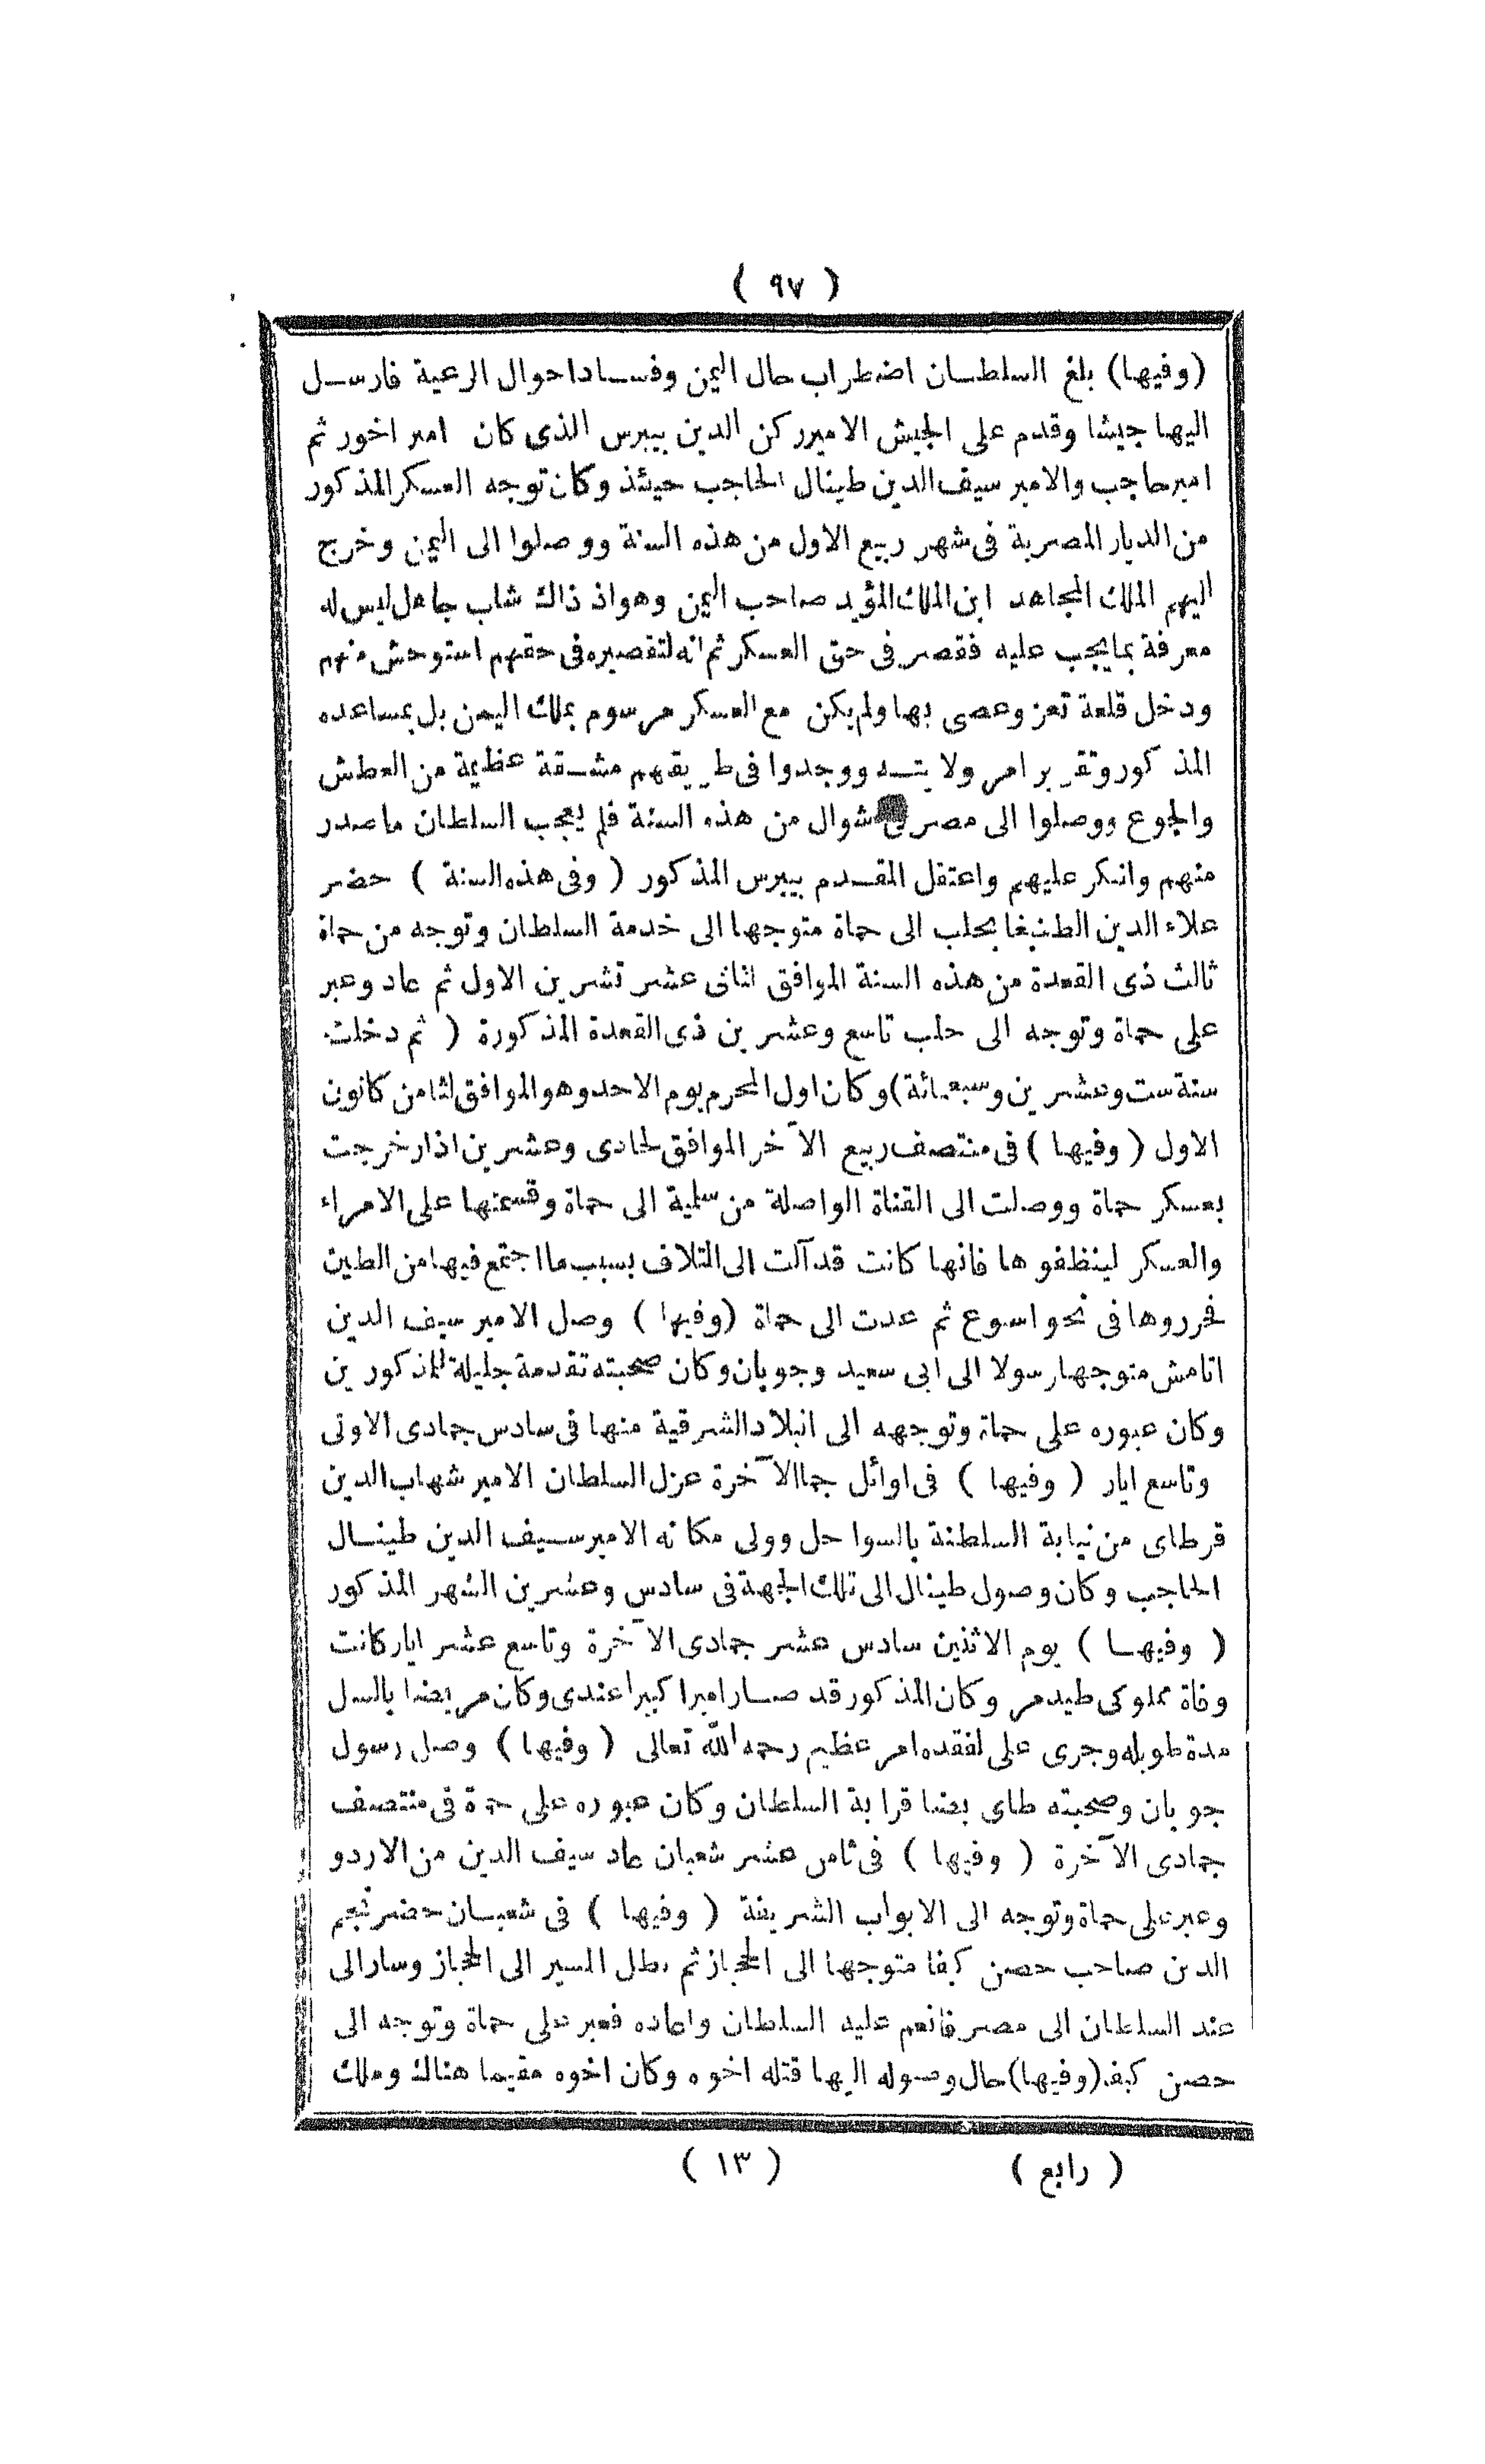 ( ٩٧ )
(وفيها) بلغ السلطـان اضطراب حال اليمن وفسـاد احوال الرعية فارسـل
اليها جيشا وقدم على الجيش الامير ركن الدين بيبرس الذى كان امير اخور ثم
امير حاجب والامير سيف الدين طينال الحاجب حيئذ وكان توجه العسكر المذكور
من الديار المصرية فى شهر ربيع الاول من هذه السنة ووصلوا الى اليمن وخرج
اليهم الملك المجاهد ابن الملك المؤيد صاحب اليمن وهو اذ ذاك شاب جاهل ليس له
معرفة بما يجب عليه فقصر فى حق العسكر ثم انه لتقصيره فى حقهم استوحش منهم
ودخل قلعة تعز وعصى بها ولم يكن مع العسكر مرسوم بملك اليمن بل بمساعده
المذكور وتقرير امر ولايته ووجدوا فى طريقهم مشقة عظيمة من العطش
والجوع ووصلوا الى مصر فى شوال من هذه السنة فلم يعجب السلطان ما صدر
منهم وانكر عليهم واعتقل المقدم بيبرس المذكور ( وفى هذه السنة ) حضر
علاء الدين الطنبغا بحلب الى حماة متوجها الى خدمة السلطان وتوجه من حماة
ثالث ذى القعدة من هذه السنة الموافق اثانى عشر تشرين الاول ثم عاد وعبر
على حماة وتوجه الى حلب تاسع وعشرين ذى القعدة المذكورة ( ثم دخلت
سنة ست وعشرين وسبعمائة) وكان اول المحرم يوم الاحد وهو الموافق لثامن كانون
الاول ( وفيها ) فى منتصف ربيع الآخر الموافق لحادى وعشرين اذار خرجت
بعسكر حماة ووصلت الى القناة الواصلة من سلمية الى حماة وقسمتها على الامراء
والعسكر لينظفوها فانها كانت قد آلت الى التلاف بسبب ما اجتمع فيها من الطين
فحرروها فى نحو اسبوع ثم عدت الى حماة (وفيها ) وصل الامير سيف الدين
اتامش متوجها رسولا الى ابى سعيد وجوبان وكان صحبته تقدمة جليلة للمذكورين
وكان عبوره على حماة وتوجهه الى البلاد الشرقية منها فى سادس جمادى الاولى
وتاسع ايار ( وفيها ) فى اوائل جما الآخرة عزل السلطان الامير شهاب الدين
قرطاى من نيابة السلطنة بالسواحل وولى مكانه الامير سيف الدين طينـال
الحاجب وكان وصول طينال الى تلك الجهة فى سادس وعشرين الشهر المذكور
( وفيهـا ) يوم الاثنين سادس عشر جمادى الآخرة وتاسع عشر ايار كانت
وفاة مملوكى طيدمر وكان المذكور قد صـار اميرا كبيرا عندى وكان مريضا بالسل
مدة طويله وجرى على لفقده امر عظيم رحمه الله تعالى ( وفيها ) وصل رسول
جوبان وصحبته طاى بضا قرابة السلطان وكان عبوره على حماة فى منتصف
جمادى الآخرة ( وفيها ) فى ثامن عشر شعبان عاد سيف الدين من الاردو
وعبر على حماة وتوجه الى الابواب الشريفة ( وفيها ) فى شعبـان حضر نجم
الدين صاحب حصن كيفا متوجها الى الحجاز ثم بطل المسير الى الحجاز وسار الى
عند السلطان الى مصر فانعم عليه السلطان واعاده فعبر على حماة وتوجه الى
حصن كيفا (وفيها) حال وصوله اليها قتله اخوه وكان اخوه مقيما هناك وملك
( رابع ) ( ١٣ )